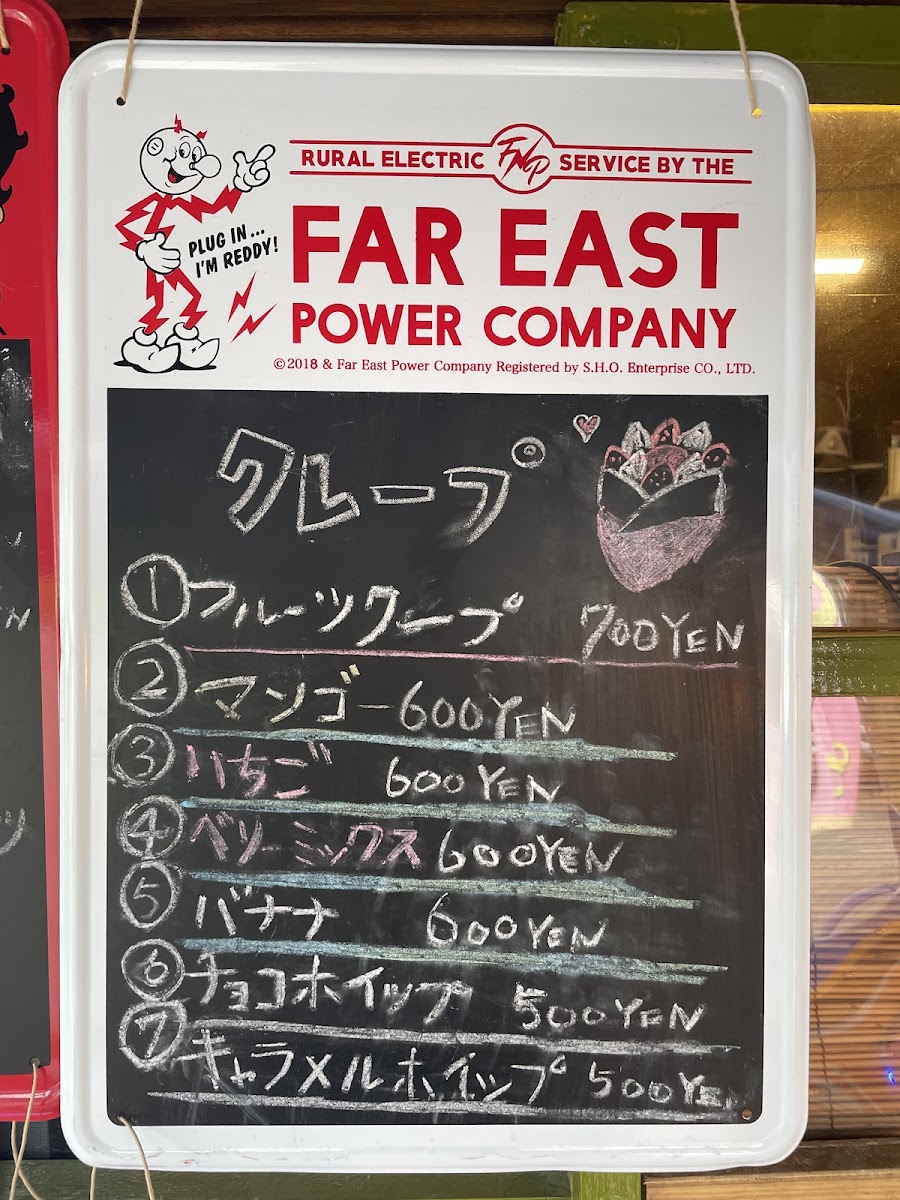 RURAL ELECTRIC FNP SERVICE BY THE
FAR EAST
POWER COMPANY
PLUG IN...
I'M REDDY!
©2018 & Far East Power Company Registered by S.H.O. Enterprise CO., LTD.
クレープ
① フルーツクープ 700YEN
② マンゴー 600YEN
③ いちご 600YEN
④ ベリーミックス 600YEN
⑤ バナナ 600YEN
⑥ チョコホイップ 500YEN
⑦ キャラメルホイップ 500YEN